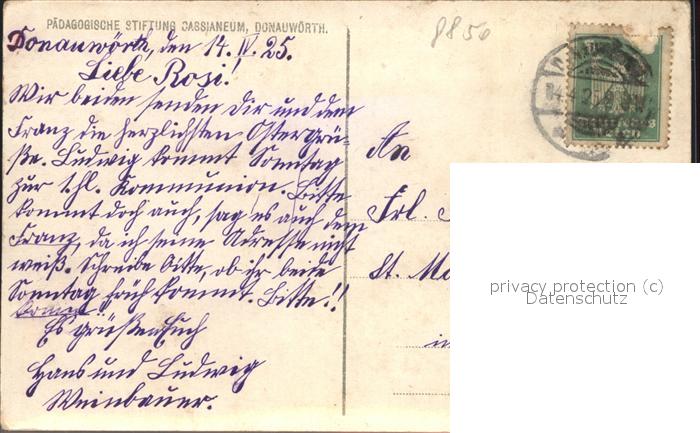 PÄDAGOGISCHE STIFTUNG CASSIANEUM, DONAUWÖRTH.
8850
Donauwörth, den 14. IV. 25.
Liebe Rosi!
Wir beiden senden Dir und dem
Franz die herzlichsten Ostergrü-
ße. Ludwig kommt Sonntag
zur 1. hl. Kommunion. Bitte
kommt doch auch, sag es auch dem
Franz, da ich seine Adresse nicht
weiß. Schreibe bitte, ob ihr beide
Sonntag früh kommt. Bitte!!
Es grüßen Euch
Hans und Ludwig
Weinbauer.
An
Frl.
St.
in
privacy protection (c)
Datenschutz